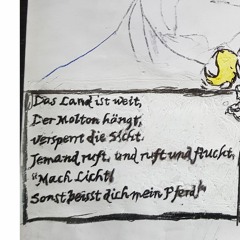 Das Land ist weit,
Der Molton hängt,
versperrt die Sicht.
Jemand ruft, und ruft und flucht,
"Mach Licht!
Sonst beisst dich mein Pferd!"